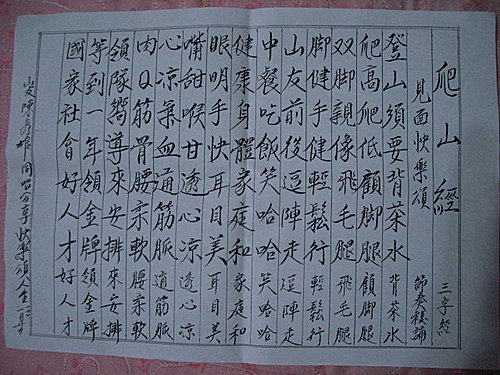 爬山經 三字經
見面快樂頌 節奏
登山須要背茶水 背茶水
爬高爬低顧腳腿 顧腳腿
双腳親像飛毛腿 飛毛腿
腳健手健輕鬆行 輕鬆行
山友前後逗陣走 逗陣走
中餐吃飯笑哈哈 笑哈哈
健康身體家庭和 家庭和
眼明手快耳目美 耳目美
嘴甜喉甘透心涼 透心涼
心涼氣血通筋脈 通筋脈
肉Q筋骨腰柔軟 腰柔軟
領隊嚮導來安排 來安排
等到一年領金牌 領金牌
國家社會好人才 好人才
山友陳 同 分享 快樂頌人生